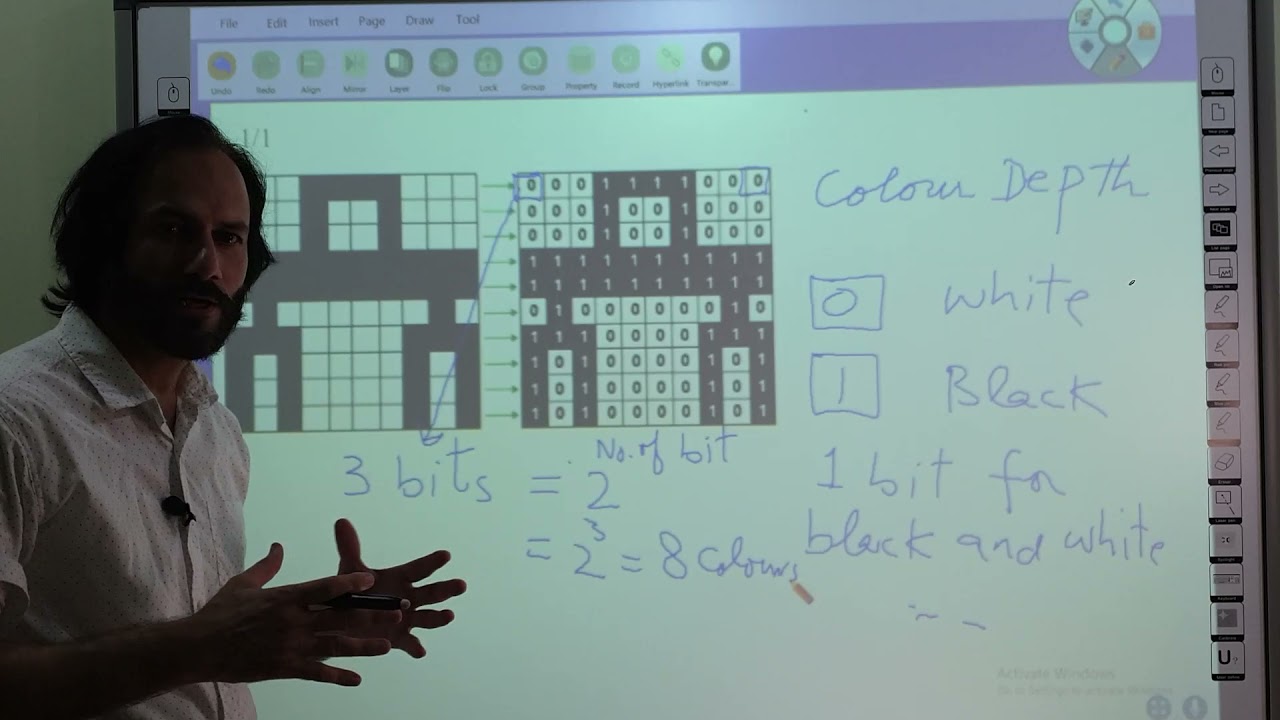 File Edit Insert Page Draw Tool
Undo Redo Align Mirror Layer Flip Lock Group Property Record Hyperlink Transpar...
1/1
0 0 0 1 1 1 1 0 0 0
0 0 0 1 0 0 1 0 0 0
0 0 0 1 0 0 1 0 0 0
1 1 1 1 1 1 1 1 1 1
1 1 1 1 1 1 1 1 1 1
0 1 0 0 0 0 0 0 1 0
1 1 1 0 0 0 0 1 1 1
1 0 1 0 0 0 0 1 0 1
1 0 1 0 0 0 0 1 0 1
1 0 1 0 0 0 0 1 0 1
Colour Depth
0 White
1 Black
1 bit for
black and white
3 bits = 2 No. of bit
= 2 3 = 8 colours
Activate Windows
Go to Settings to activate Windows
U?